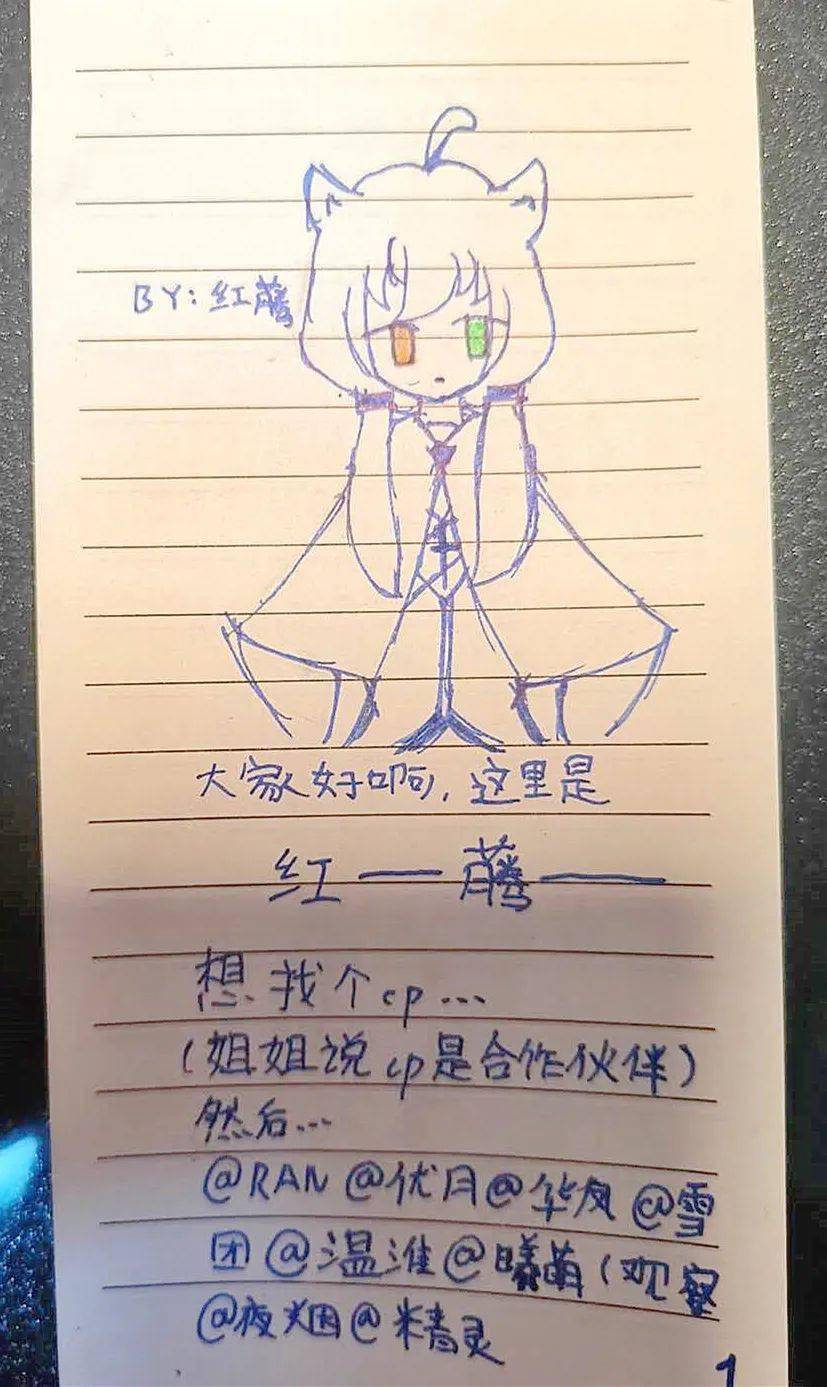 BY:红藤
大家好啊,这里是
红——藤——
想找个cp...
(姐姐说cp是合作伙伴)
然后...
@RAN @优月@华凤@雪
团@温淮@曦萌(观察
@夜烟@精灵
1